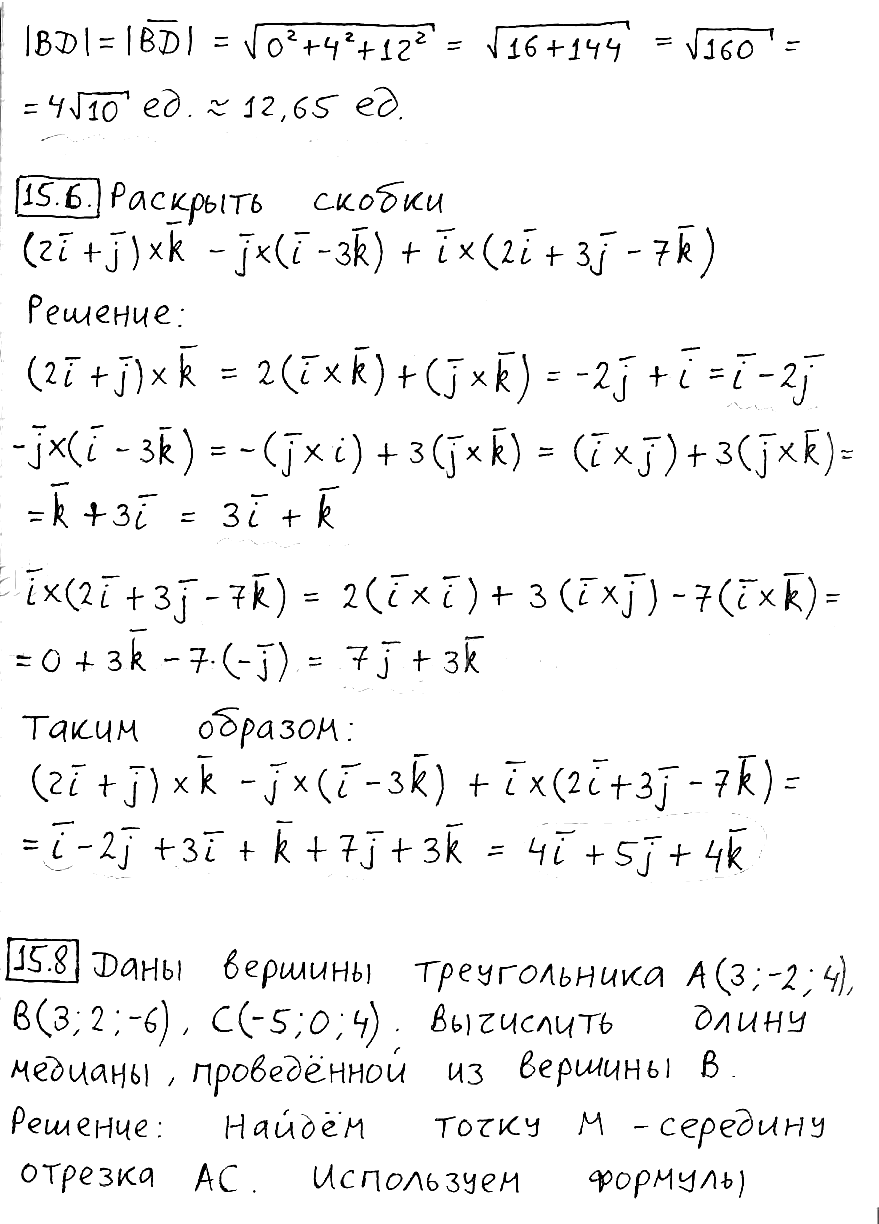 |BD| = |B̅D̅| = √(0² + 4² + 12²) = √(16 + 144) = √160 =
= 4√10 ед. ≈ 12,65 ед.
15.6. Раскрыть скобки
(2i̅ + j̅) × k̅ - j̅ × (i̅ - 3k̅) + i̅ × (2i̅ + 3j̅ - 7k̅)
Решение:
(2i̅ + j̅) × k̅ = 2(i̅ × k̅) + (j̅ × k̅) = -2j̅ + i̅ = i̅ - 2j̅
-j̅ × (i̅ - 3k̅) = -(j̅ × i) + 3(j̅ × k̅) = (i̅ × j̅) + 3(j̅ × k̅) =
= k̅ + 3i̅ = 3i̅ + k̅
i̅ × (2i̅ + 3j̅ - 7k̅) = 2(i̅ × i̅) + 3(i̅ × j̅) - 7(i̅ × k̅) =
= 0 + 3k̅ - 7·(-j̅) = 7j̅ + 3k̅
Таким образом:
(2i̅ + j̅) × k̅ - j̅ × (i̅ - 3k̅) + i̅ × (2i̅ + 3j̅ - 7k̅) =
= i̅ - 2j̅ + 3i̅ + k̅ + 7j̅ + 3k̅ = 4i̅ + 5j̅ + 4k̅
15.8 Даны вершины треугольника A(3; -2; 4),
B(3; 2; -6), C(-5; 0; 4). Вычислить длину
медианы, проведённой из вершины B.
Решение: Найдём точку M - середину
отрезка AC. Используем формулы